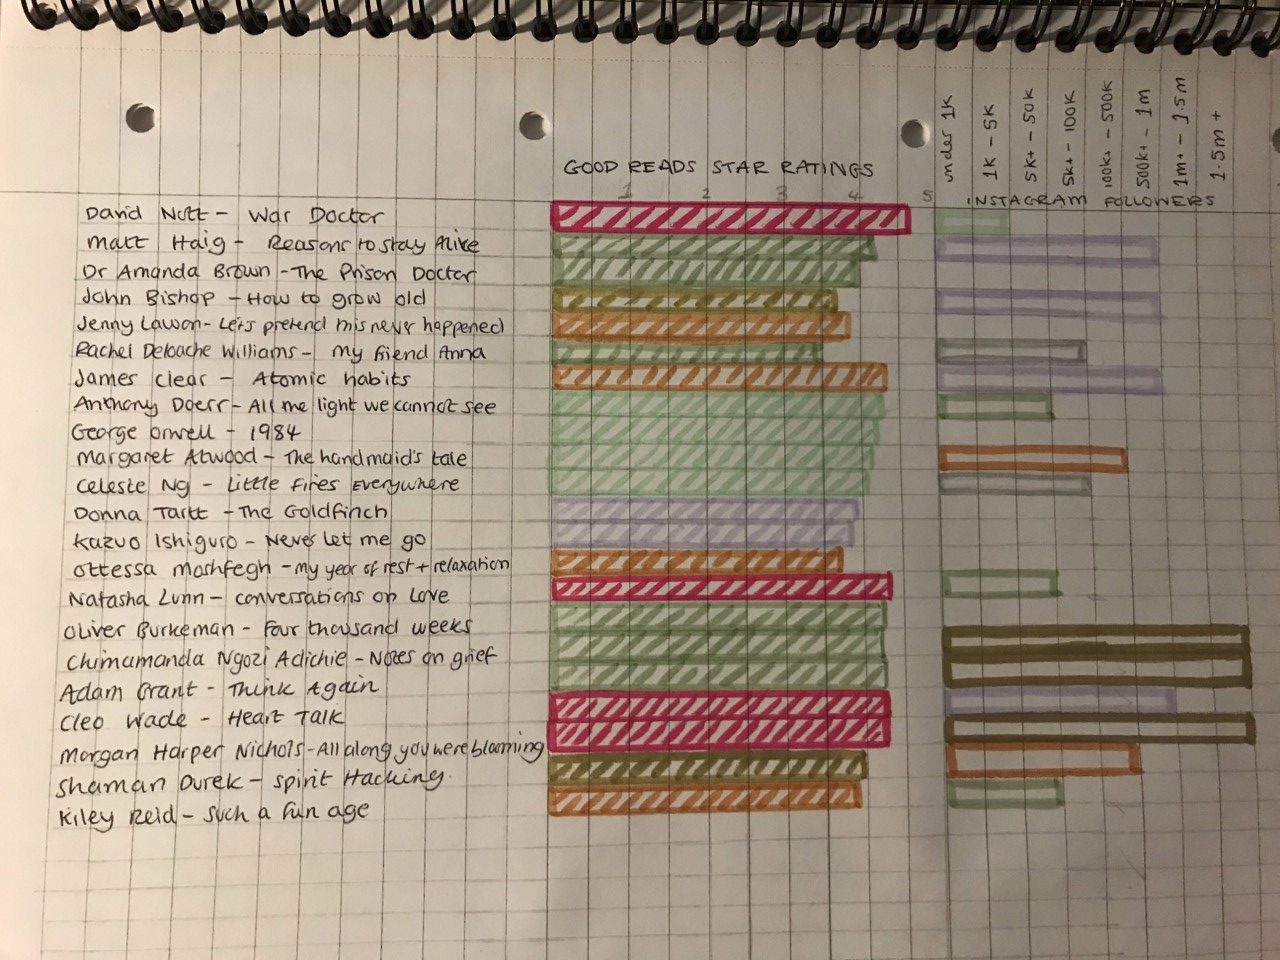 under 1K
1K - 5K
5K+ - 50K
5K+ - 100K
100K+ - 500K
500K+ - 1m
1m+ - 1.5m
1.5m +
GOOD READS STAR RATINGS
1 2 3 4 5
INSTAGRAM FOLLOWERS
David Nott - War Doctor
Matt Haig - Reasons to stay Alive
Dr Amanda Brown - The Prison Doctor
John Bishop - How to grow old
Jenny Lawson - Lets pretend this never happened
Rachel Deloache Williams - my friend Anna
James Clear - Atomic habits
Anthony Doerr - All the light we cannot see
George Orwell - 1984
Margaret Atwood - The handmaid's tale
Celeste Ng - Little Fires Everywhere
Donna Tartt - The Goldfinch
Kazuo Ishiguro - Never let me go
Ottessa Moshfegh - my year of rest + relaxation
Natasha Lunn - conversations on Love
Oliver Burkeman - Four thousand weeks
Chimamanda Ngozi Adichie - Notes on grief
Adam Grant - Think Again
Cleo Wade - Heart Talk
Morgan Harper Nichols - All along you were blooming
Shaman Durek - Spirit Hacking.
Kiley Reid - Such a fun age